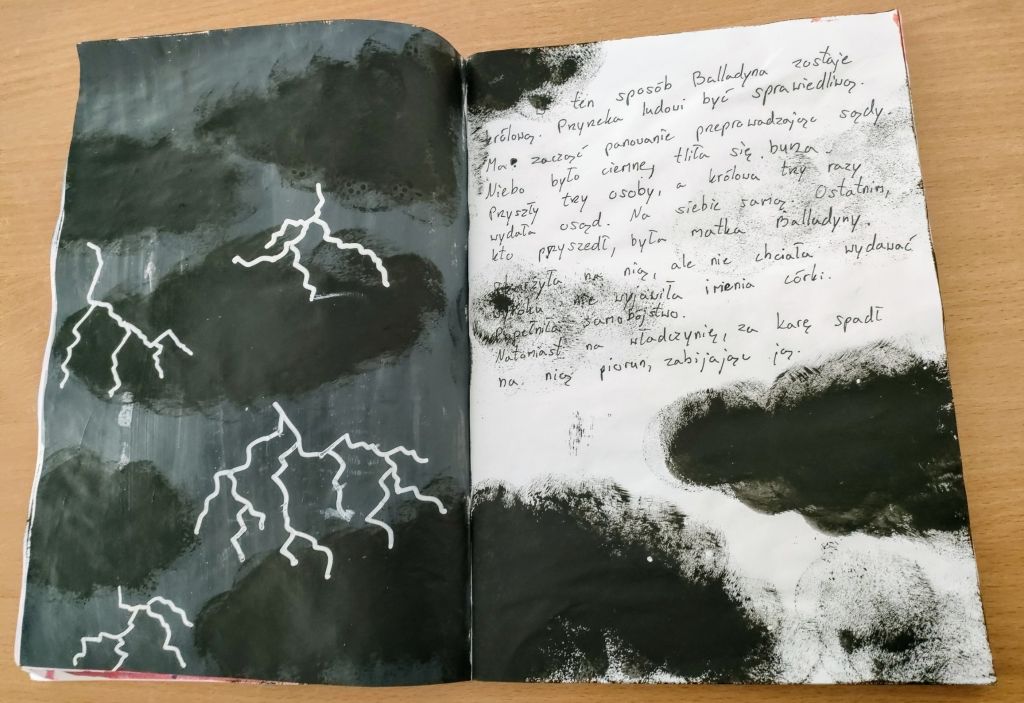 ten sposób Balladyna zostaje
królową. Przyrzeka ludowi być sprawiedliwą.
Ma zacząć panowanie przeprawadzając sądy.
Niebo było ciemne, tliła się burza.
Przyszły trzy osoby, a królowa trzy razy
wydała osąd. Na siebie samą. Ostatnim,
kto przyszedł, była matka Balladyny.
na nią, ale nie chciała wydawać
wyroku nie wyjawiła imienia córki.
Popełniła samobójstwo.
Natomiast na władczynię, za karę spadł
na nią piorun, zabijając ją.